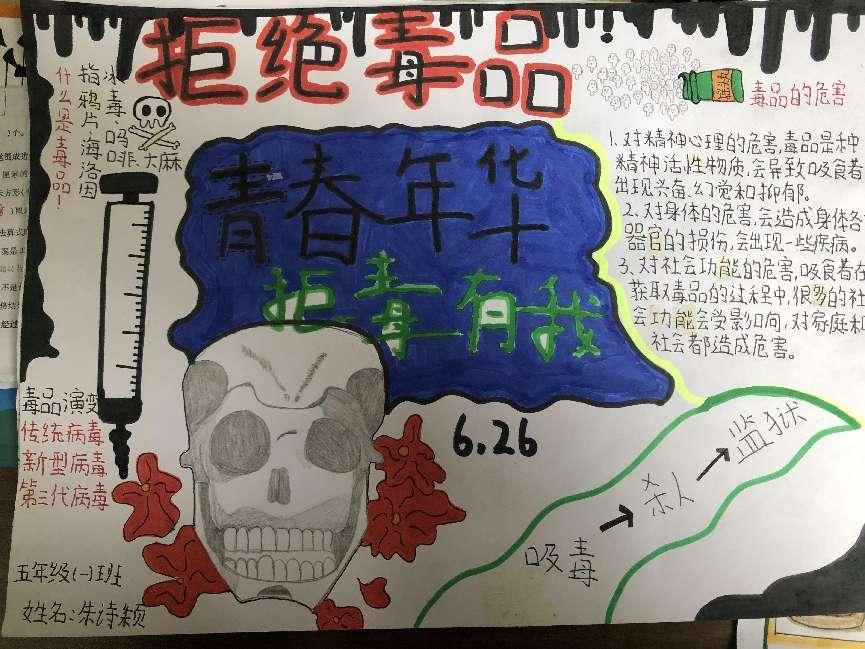 拒绝毒品
什么是毒品!
指鸦片、海洛因
冰毒、吗啡、大麻
青春年华
拒毒有我
毒品的危害
1.对精神心理的危害,毒品是种
精神活性物质,会导致吸食者
出现兴奋、幻觉和抑郁。
2、对身体的危害,会造成身体各
器官的损伤,会出现一些疾病。
3、对社会功能的危害,吸食者在
获取毒品的过程中,很多的社
会功能会受影响,对家庭和
社会都造成危害。
毒品演变
传统病毒
新型病毒
第三代病毒
6.26
吸毒→杀人→监狱
五年级(一)班
姓名:朱诗颖